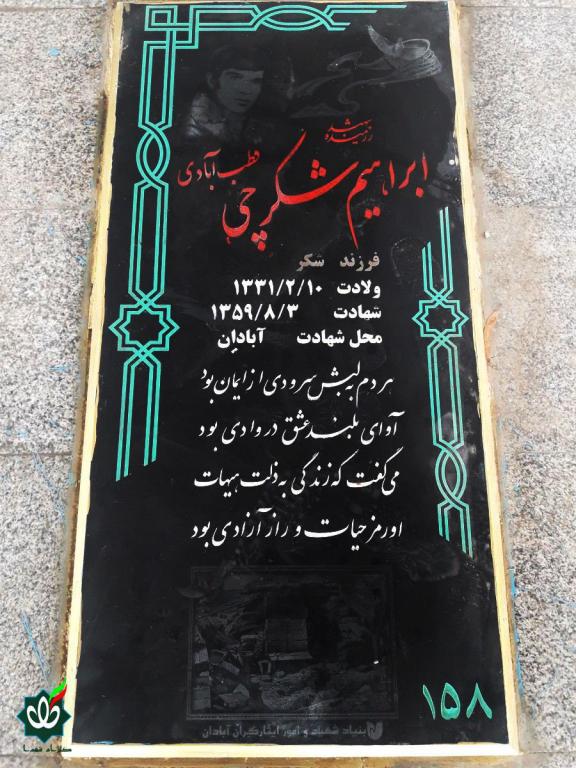 رزمنده شهید
ابراهیم شکرچی قطب آبادی
فرزند شکر
ولادت ۱۳۳۱/۲/۱۰
شهادت ۱۳۵۹/۸/۳
محل شهادت آبادان
هر دم به لبش سرودی از ایمان بود
آوای بلند عشق در وادی بود
می گفت که زندگی به ذلت هیهات
او رمز حیات و راز آزادی بود
بنیاد شهید و امور ایثارگران آبادان
۱۵۸